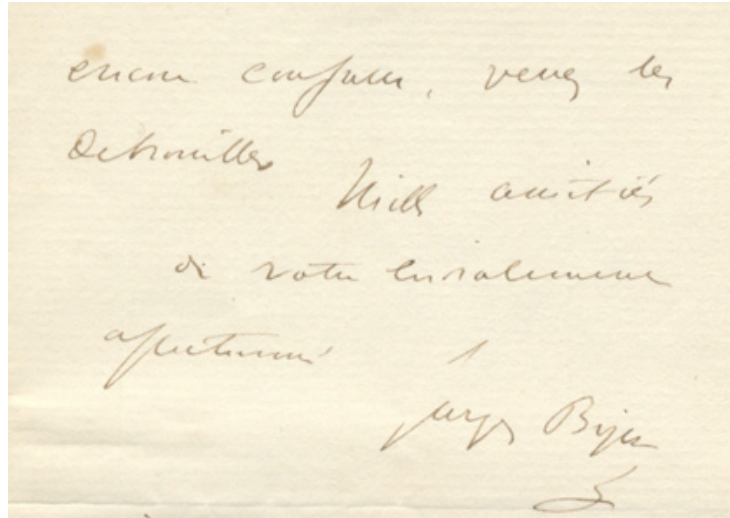 encore confuses, venez les
débrouiller Mille amitiés
de votre
affectionné
Georges Bizet